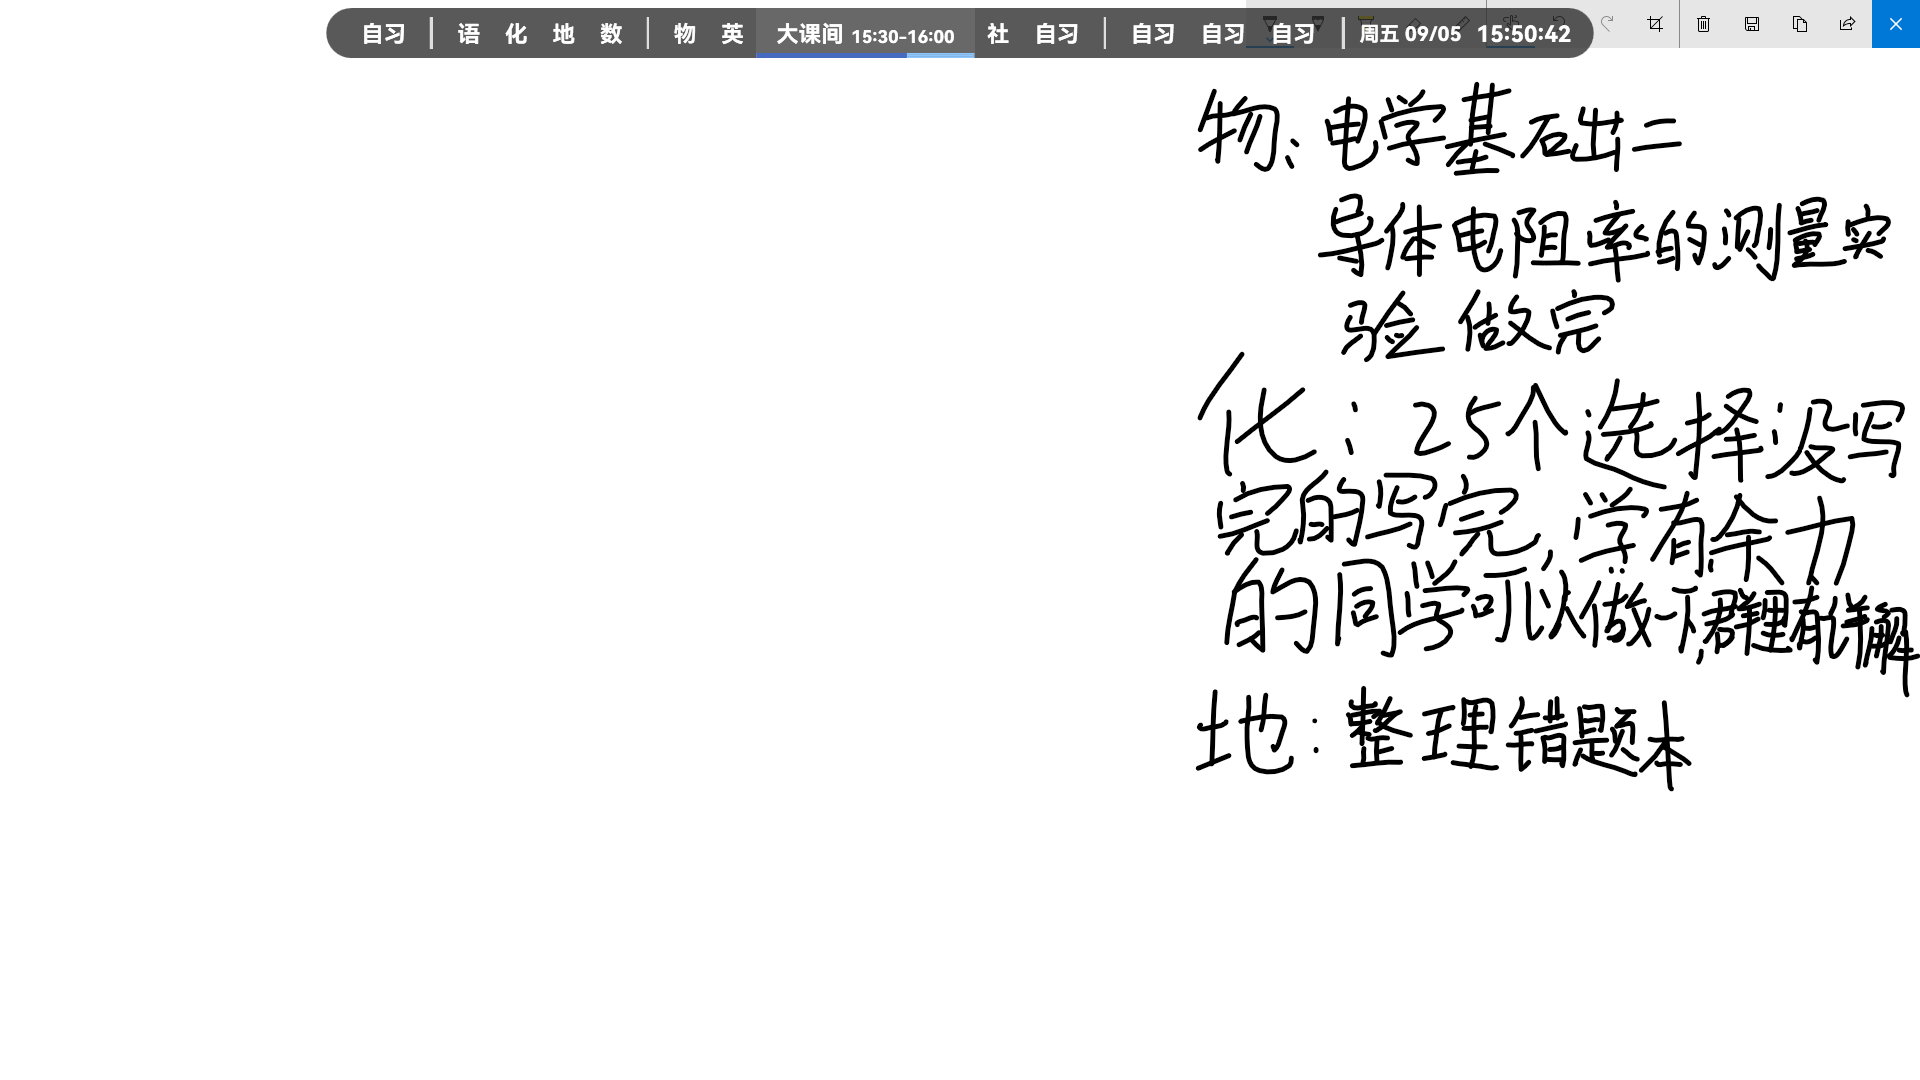 自习 | 语 化 地 数 | 物 英 大课间 15:30-16:00 社 自习 | 自习 自习 自习 | 周五 09/05 15:50:42
物：电学基础二
导体电阻率的测量实
验做完
化：25个选择没写
完的写完，学有余力
的同学可以做一下，群里有详解
地：整理错题本